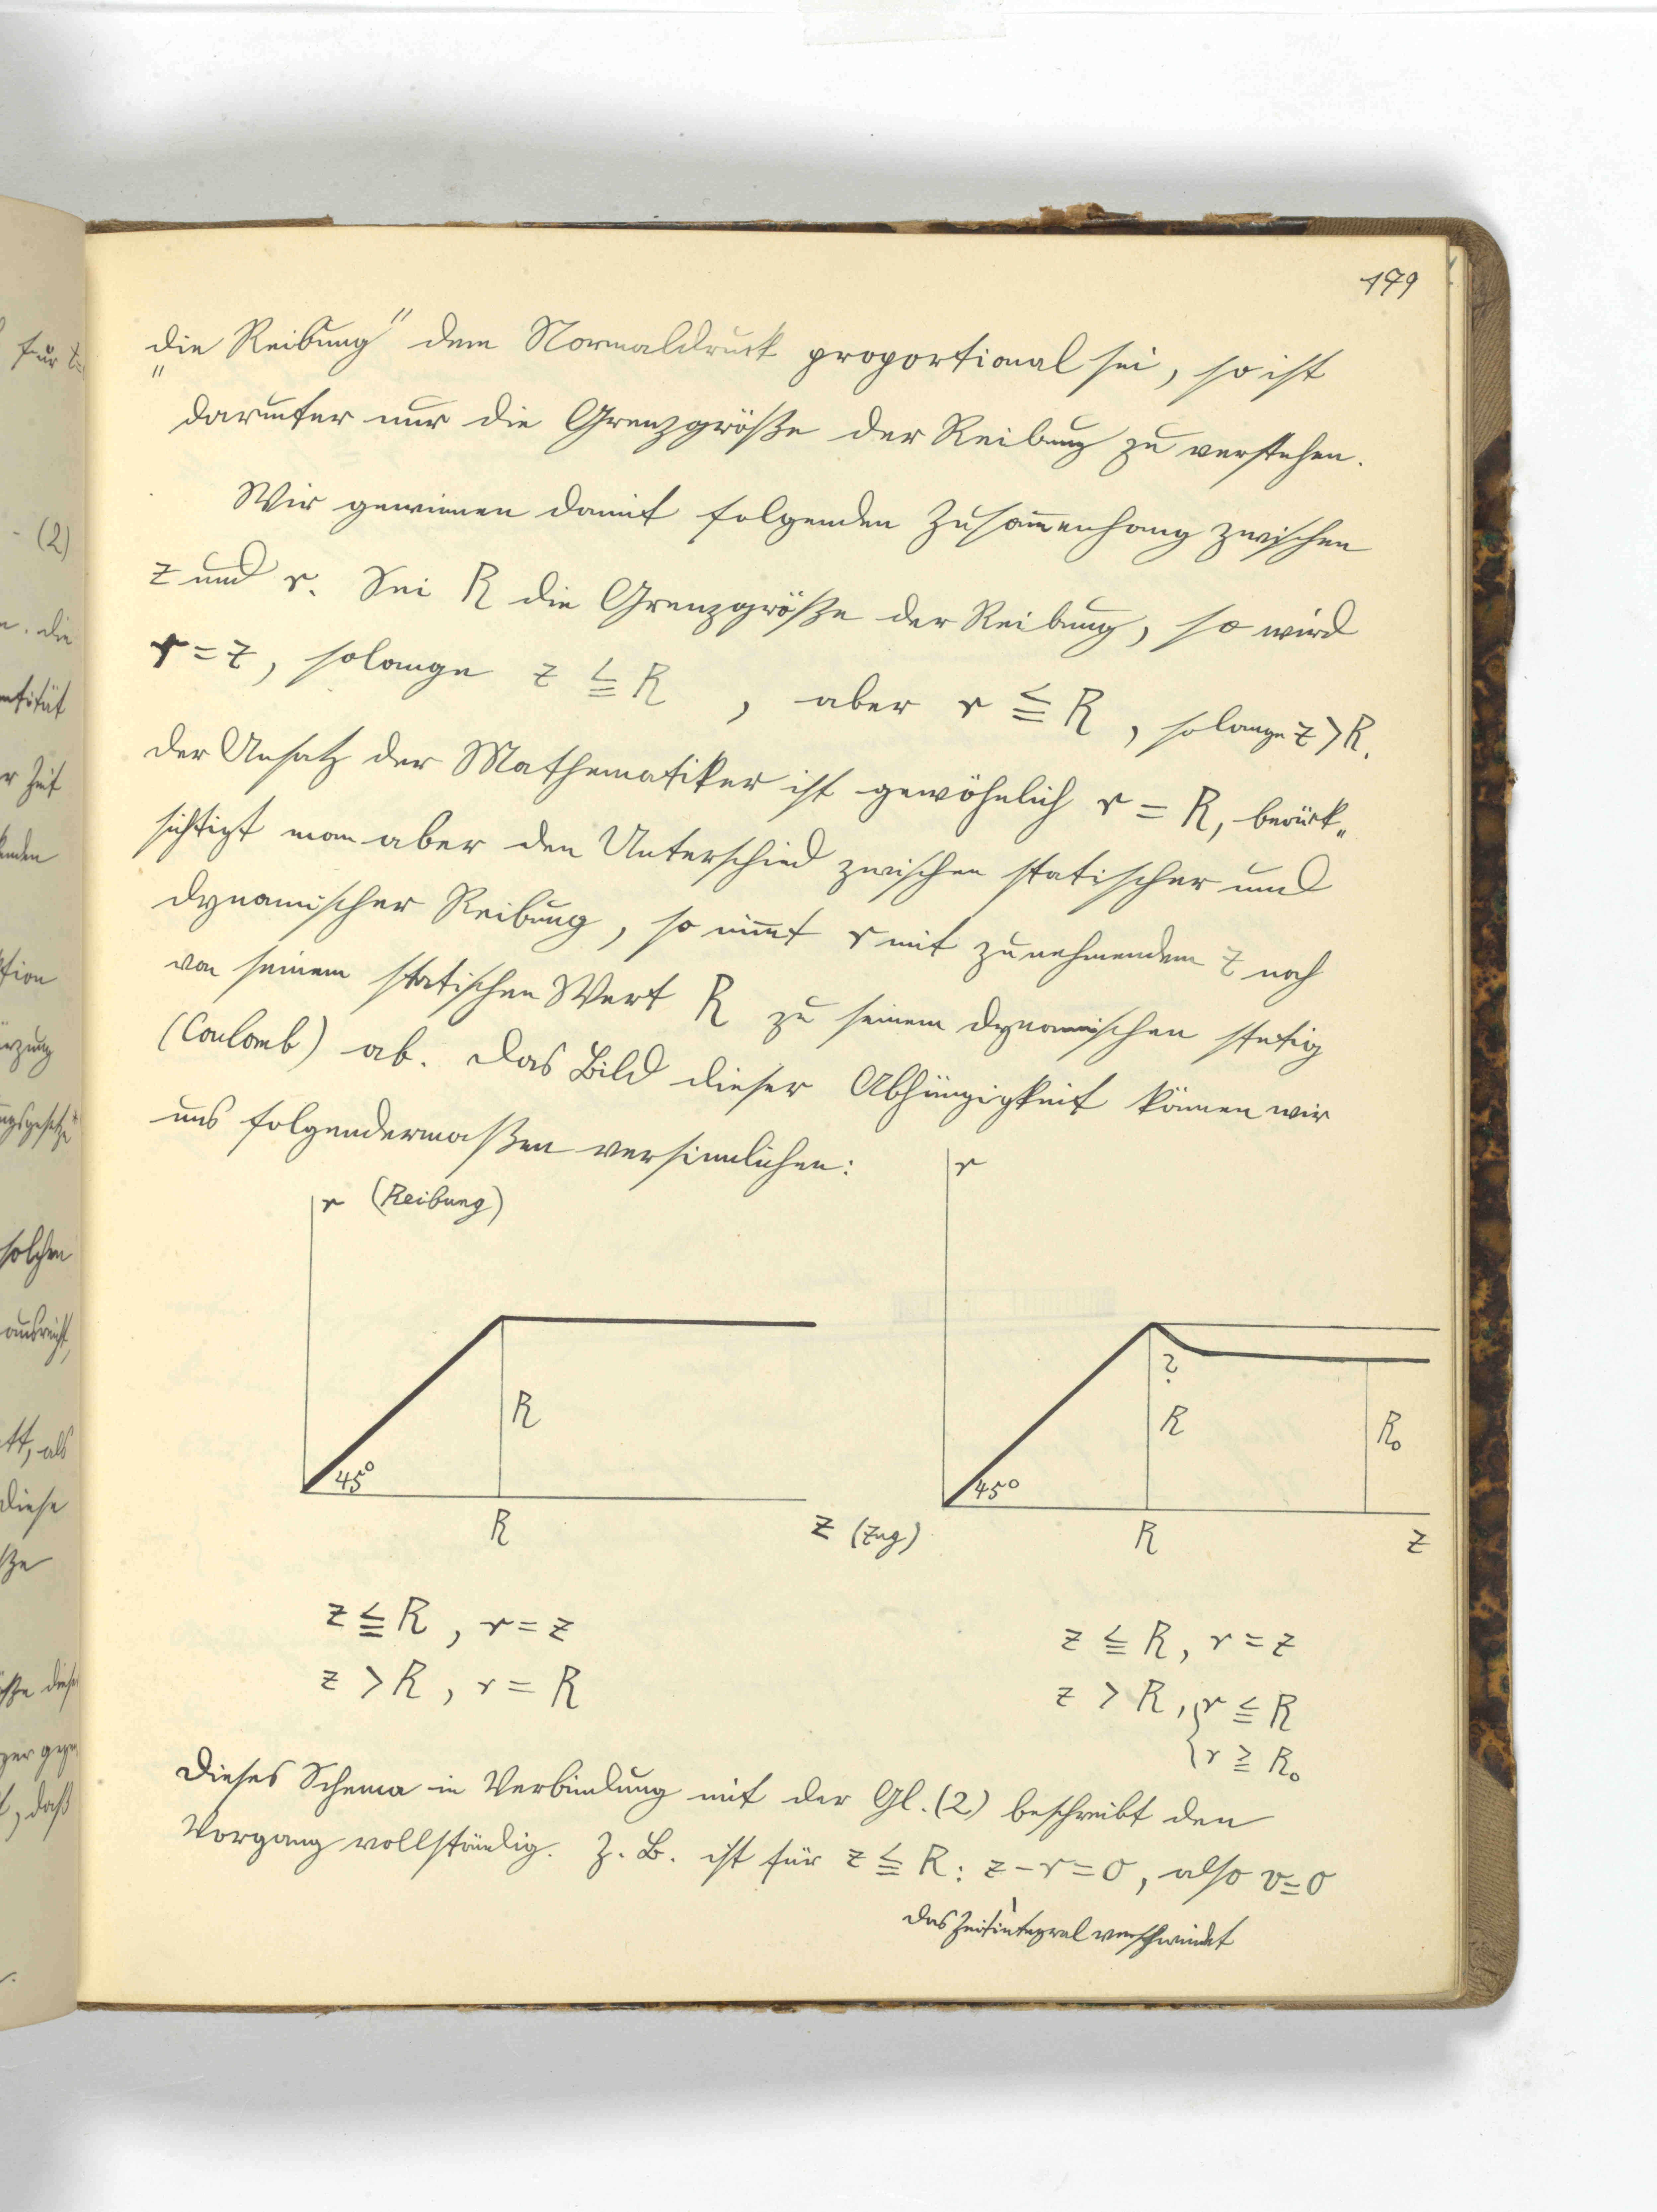 199
„die Reibung“ dem Normaldruck proportional sei, so ist
darunter nur die Grenzgröße der Reibung zu verstehen.
Wir gewinnen damit folgenden Zusam̅enhang zwischen
z und r. Sei R die Grenzgröße der Reibung, so wird
r = z, solange z ≦ R, aber r ≦ R, solange z > R.
Der Ansatz der Mathematiker ist gewöhnlich r = R, berück„
sichtigt man aber den Unterschied zwischen statischer und
dynamischer Reibung, so nim̅t r mit zunehmendem z noch
von seinem statischen Wert R zu seinem dynamischen stetig
(Coulomb) ab. Das Bild dieser Abhängigkeit können wir
uns folgendermaßen versinnlichen:
r (Reibung)
R
45°
R
z (Zug)
r
?
R
R₀
45°
R
z
z ≦ R, r = z
z > R, r = R
z ≦ R, r = z
z > R, { r ≦ R
r ≧ R₀
Dieses Schema in Verbindung mit der Gl. (2) beschreibt den
Vorgang vollständig. Z. B. ist für z ≦ R: z – r = 0, also v = 0
das Zeitintegral verschwindet
für
(2)
die
solchen
als
diese
daß